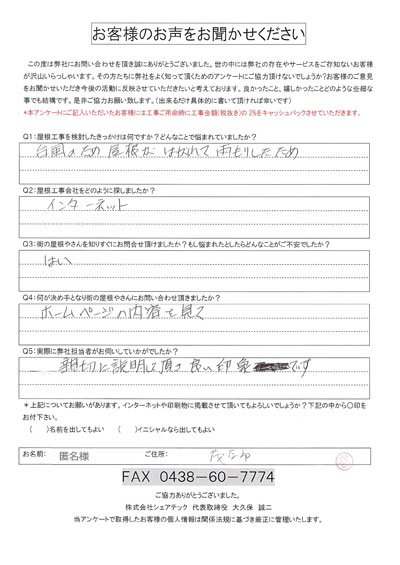 お客様のお声をお聞かせください
この度は弊社にお問い合わせを頂き誠にありがとうございました。世の中には弊社の存在やサービスをご存知ないお客様
が沢山いらっしゃいます。その方たちに弊社をよく知って頂くためのアンケートにご協力頂けないでしょうか?お客様のご意見
をお聞かせいただき今後の活動に反映させていただきたいと考えております。良かったこと、嬉しかったことどのような些細な
事でも結構です。是非ご協力お願い致します。(出来るだけ具体的に書いて頂ければ幸いです)
*本アンケートにご記入いただいたお客様には工事ご用命時に工事金額(税抜き)の2%をキャッシュバックさせていただきます。
Q1:屋根工事を検討したきっかけは何ですか?どんなことで悩まれていましたか?
台風のため屋根がはがれて雨もりしたため
Q2:屋根工事会社をどのように探しましたか?
インターネット
Q3:街の屋根やさんを知りすぐにお問合せ頂けましたか?もし悩まれたとしたらどんなことがご不安でしたか?
はい
Q4:何が決め手となり街の屋根やさんにお問い合わせ頂きましたか?
ホームページの内容を見て
Q5:実際に弊社担当者がお伺いしていかがでしたか?
親切に説明して頂き良い印象です
*上記についてお願いがあります。インターネットや印刷物に掲載させて頂いてもよろしいでしょうか?下記の中から〇印を
お付下さい。
( )名前を出してもよい ( )イニシャルなら出してもよい
お名前: 匿名様 ご住所:
FAX 0438-60-7774
ご協力ありがとうございました。
株式会社シェアテック 代表取締役 大久保 誠二
当アンケートで取得したお客様の個人情報は関係法規に基づき厳正に管理いたします。